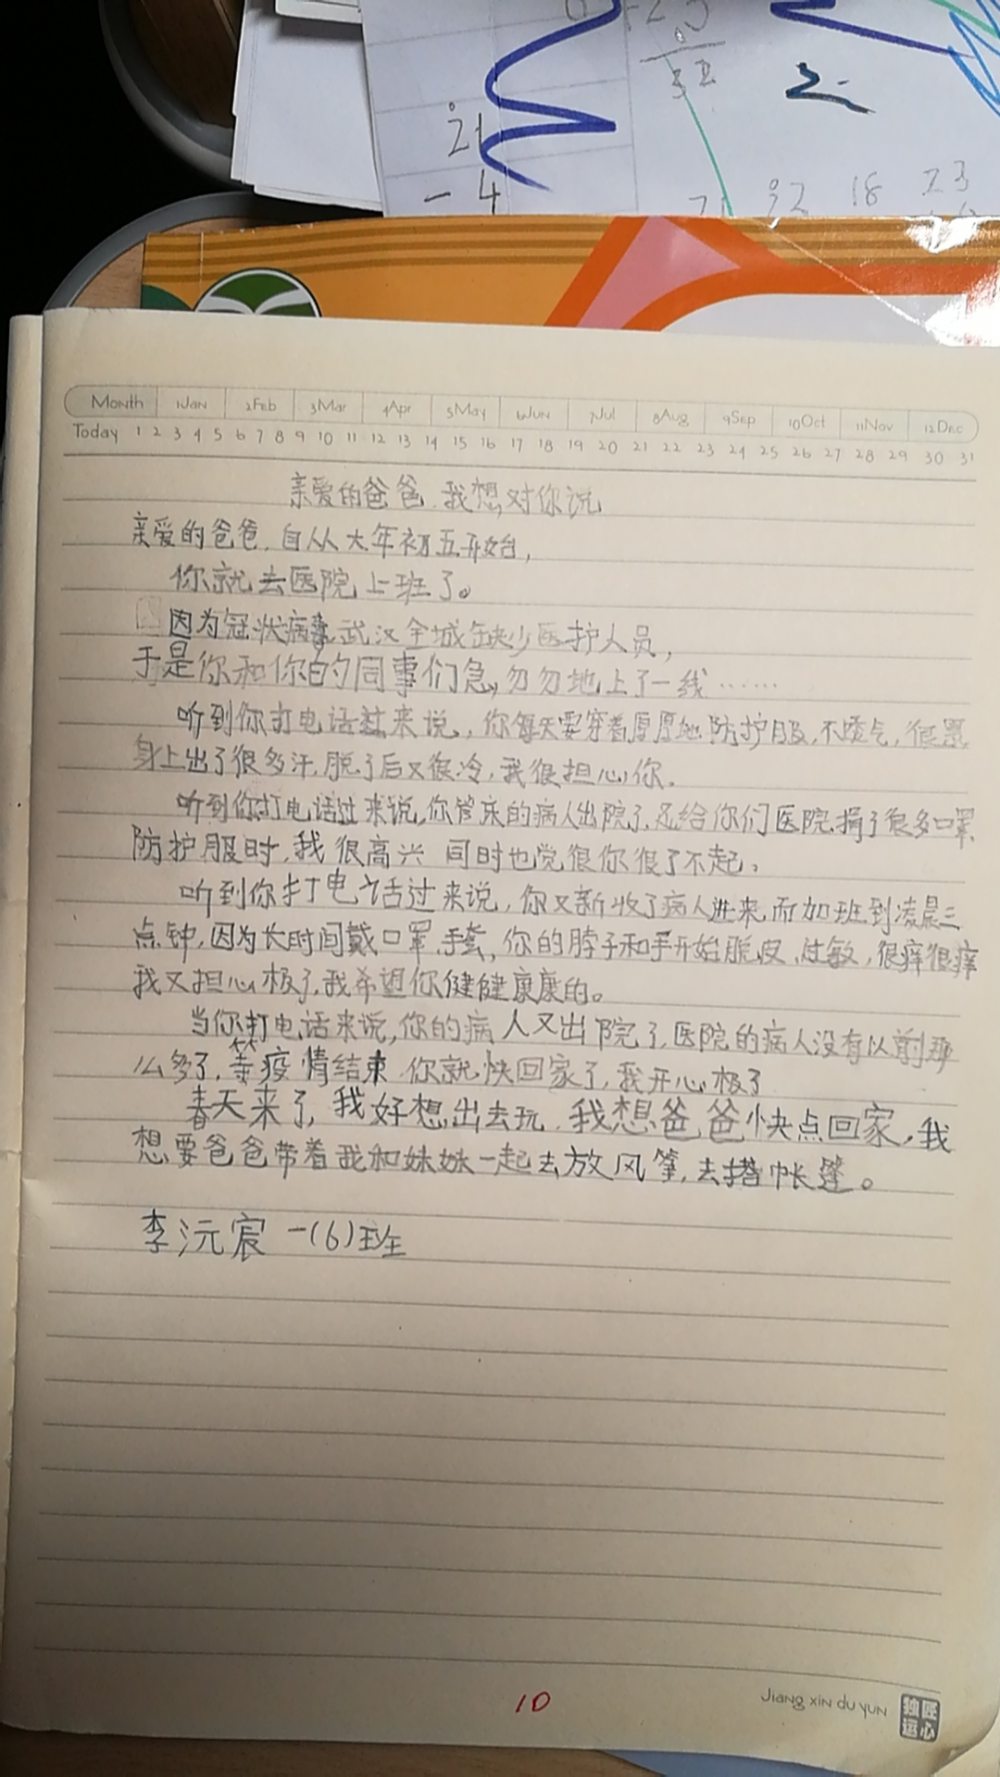 21
- 4
32
2
92 18 23
Month 1Jan 2Feb 3Mar 4Apr 5May 6Jun 7Jul 8Aug 9Sep 10Oct 11Nov 12Dec
Today 1 2 3 4 5 6 7 8 9 10 11 12 13 14 15 16 17 18 19 20 21 22 23 24 25 26 27 28 29 30 31
亲爱的爸爸,我想对你说
亲爱的爸爸,自从大年初五开始,
你就去医院上班了。
因为冠状病毒,武汉全城缺少医护人员,
于是你和你的同事们急匆匆地上了一线……
听到你打电话过来说,你每天要穿着厚厚地防护服,不透气,很累
身上出了很多汗,脱了后又很冷,我很担心你.
听到你打电话过来说,你管床的病人出院了,给你们医院捐了很多口罩,
防护服时,我很高兴 同时也觉很你很了不起。
听到你打电话过来说,你又新收了病人进来,而加班到凌晨三
点钟,因为长时间戴口罩,手套,你的脖子和手开始脱皮、过敏,很痒很痒
我又担心极了,我希望你健健康康的。
当你打电话来说,你的病人又出院了,医院的病人没有以前那
么多了,等疫情结束,你就快回家了,我开心极了
春天来了,我好想出去玩,我想爸爸快点回家,我
想要爸爸带着我和妹妹一起去放风筝,去搭帐篷。
李沅宸 一(6)班
10
Jiang xin du yun
独匠
运心